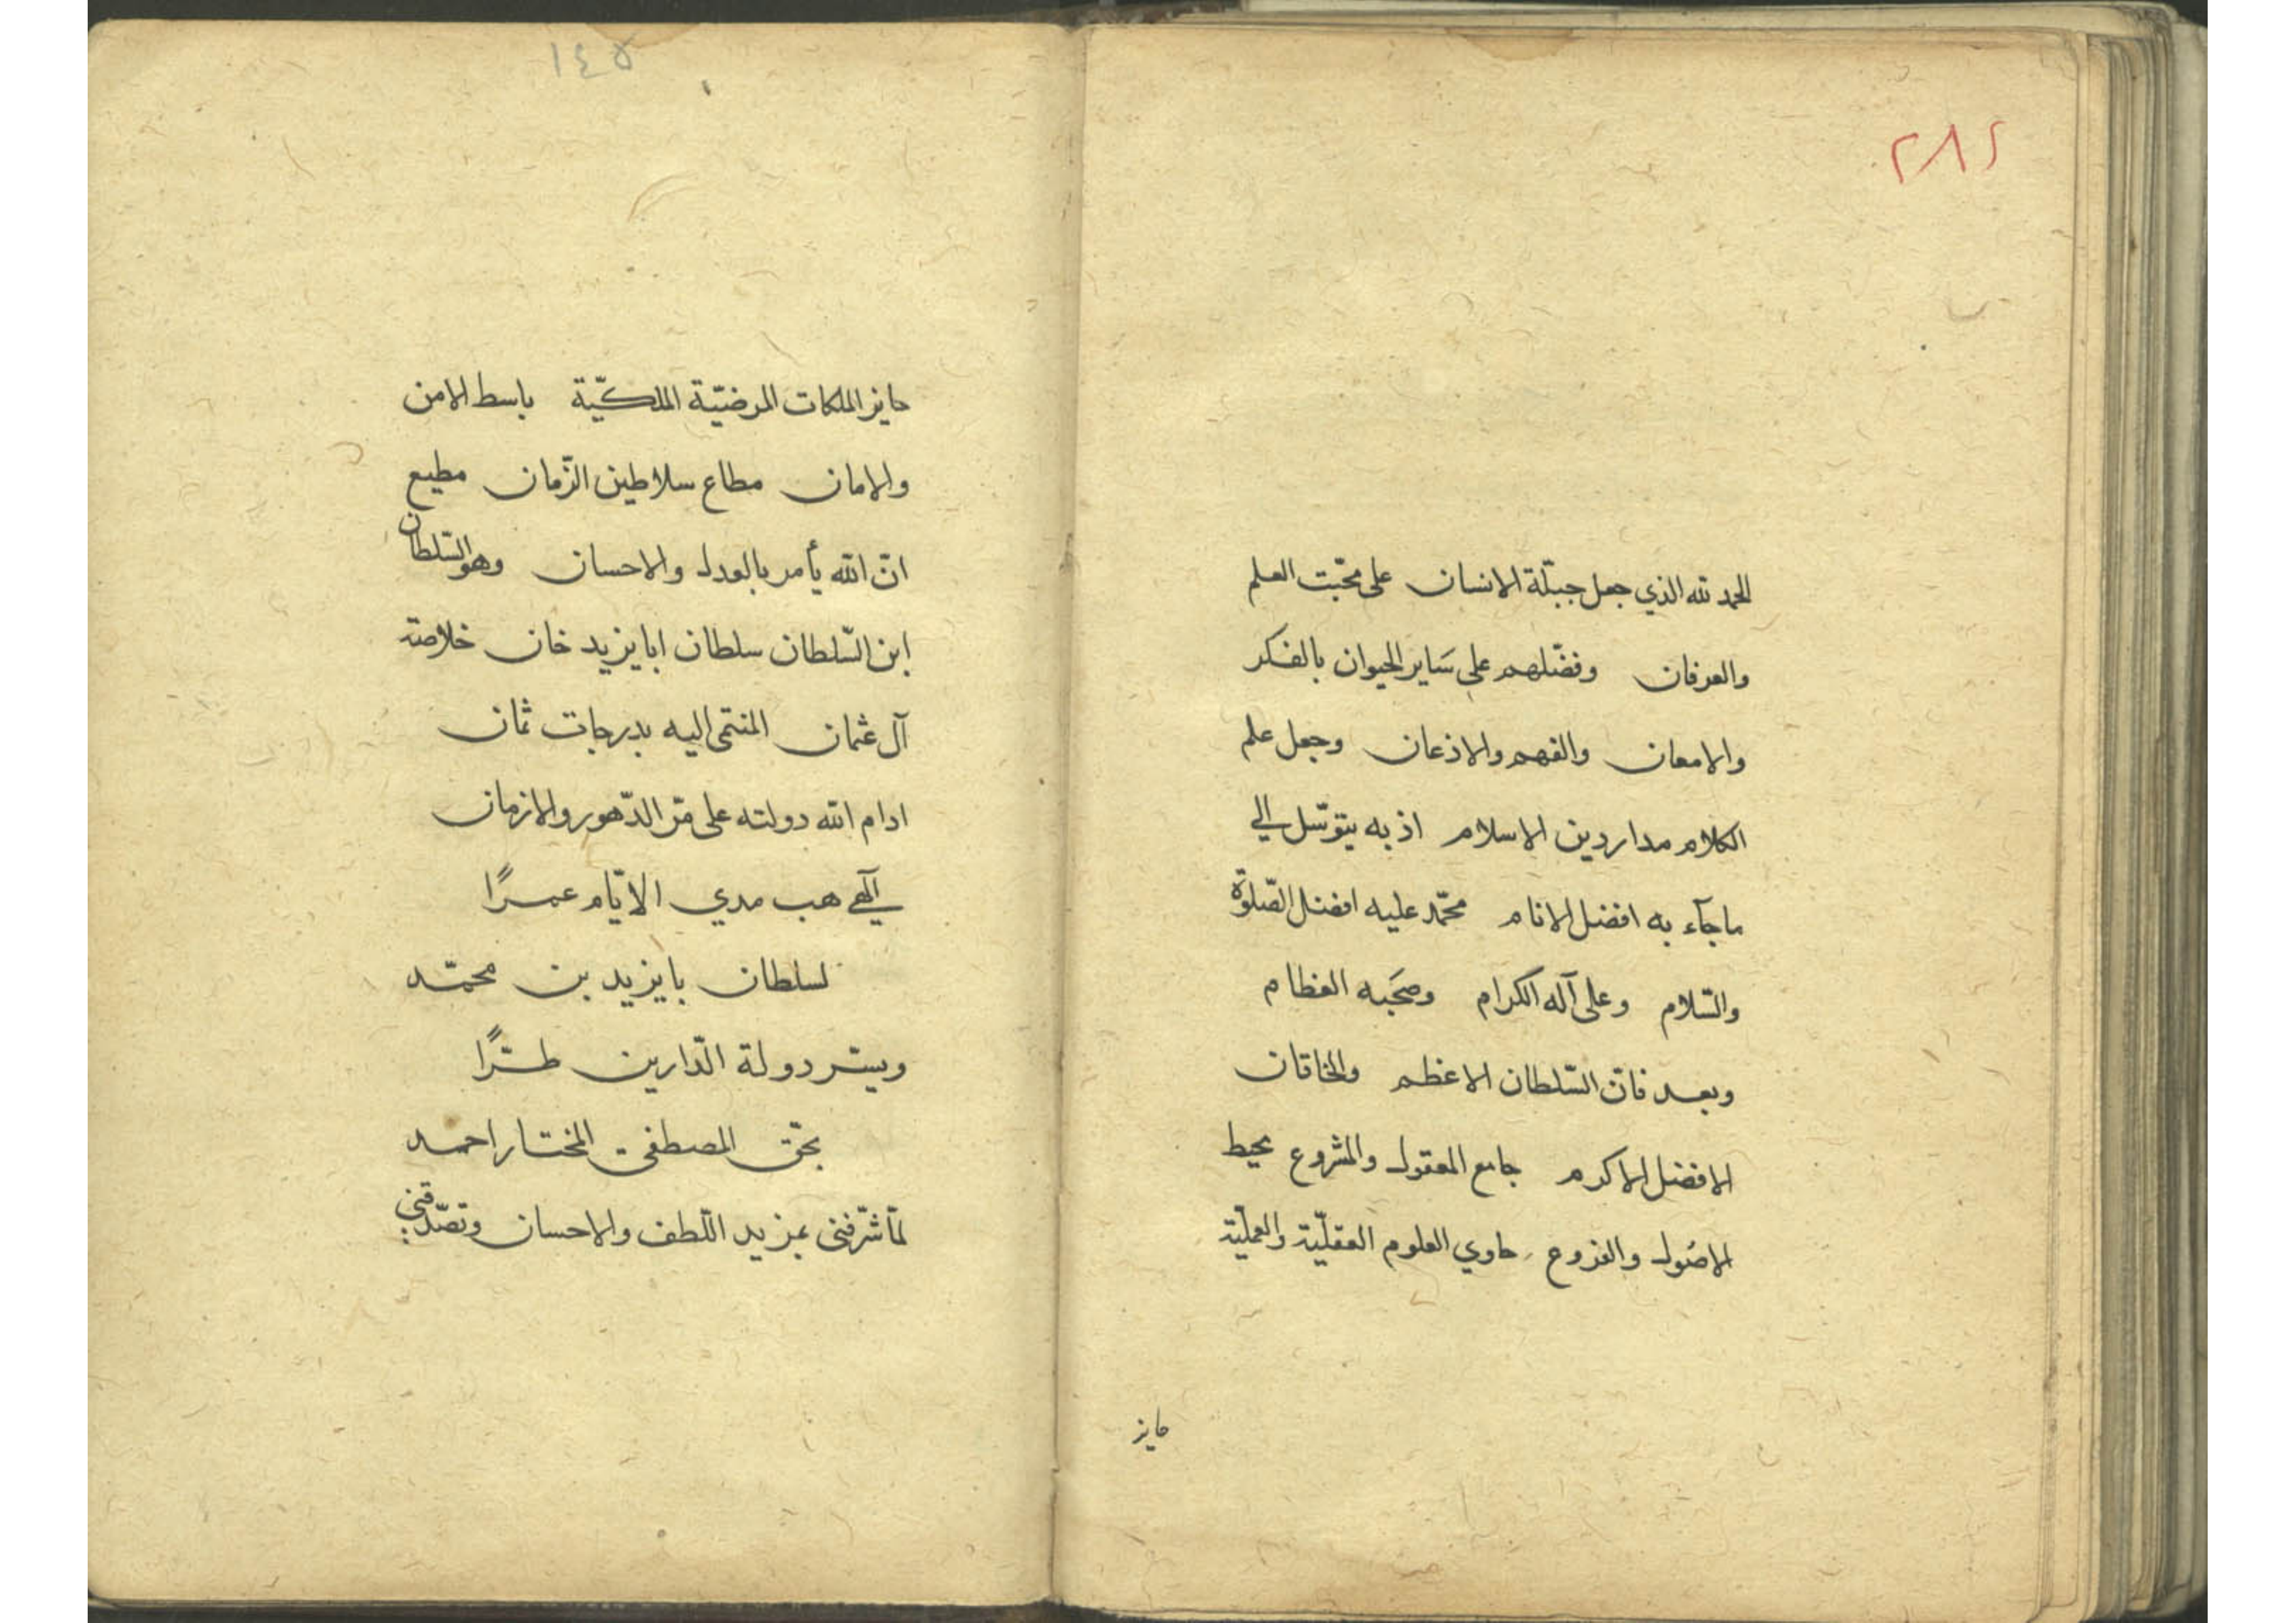 ٢٨٢
الحمد لله الذي جعل جبلّة الانسان على محبّت العلم
والعرفان وفضّلهم على سَاير الحيوان بالفكر
والامعان والفهم والاذعان وجعل علم
الكلام مدار دين الاسلام اذ به يتوسّل الي
ماجآء به افضل الانام محمّد عليه افضل الصّلوة
والسّلام وعلى آله الكرام وصَحَبه العظام
وبعد فانّ السّلطان الاعظم والخاقان
الافضل الاكرم جامع المعقول والمشروع محيط
الاصُول والفروع حاوي العلوم العقليّة والعمليّة
حايز
١٤٥
حايز الملكات المرضيّة الملكيّة باسط الامن
والامان مطاع سلاطين الزّمان مطيع
انّ الله يأمر بالعدل والاحسان وهو السّلطان
ابن السّلطان سلطان ابايزيد خان خلاصة
آل عثمان المنتمى اليه بدرجات ثمان
ادام الله دولته على مرّ الدّهور والازمان
آلهي هب مدي الايّام عمرًا
لسلطان بايزيد بن محمّد
ويسّر دولة الدّارين طرًّا
بحقّ المصطفى المختار احمد
لمّا شرّفني بمزيد اللّطف والاحسان وتصدّقني